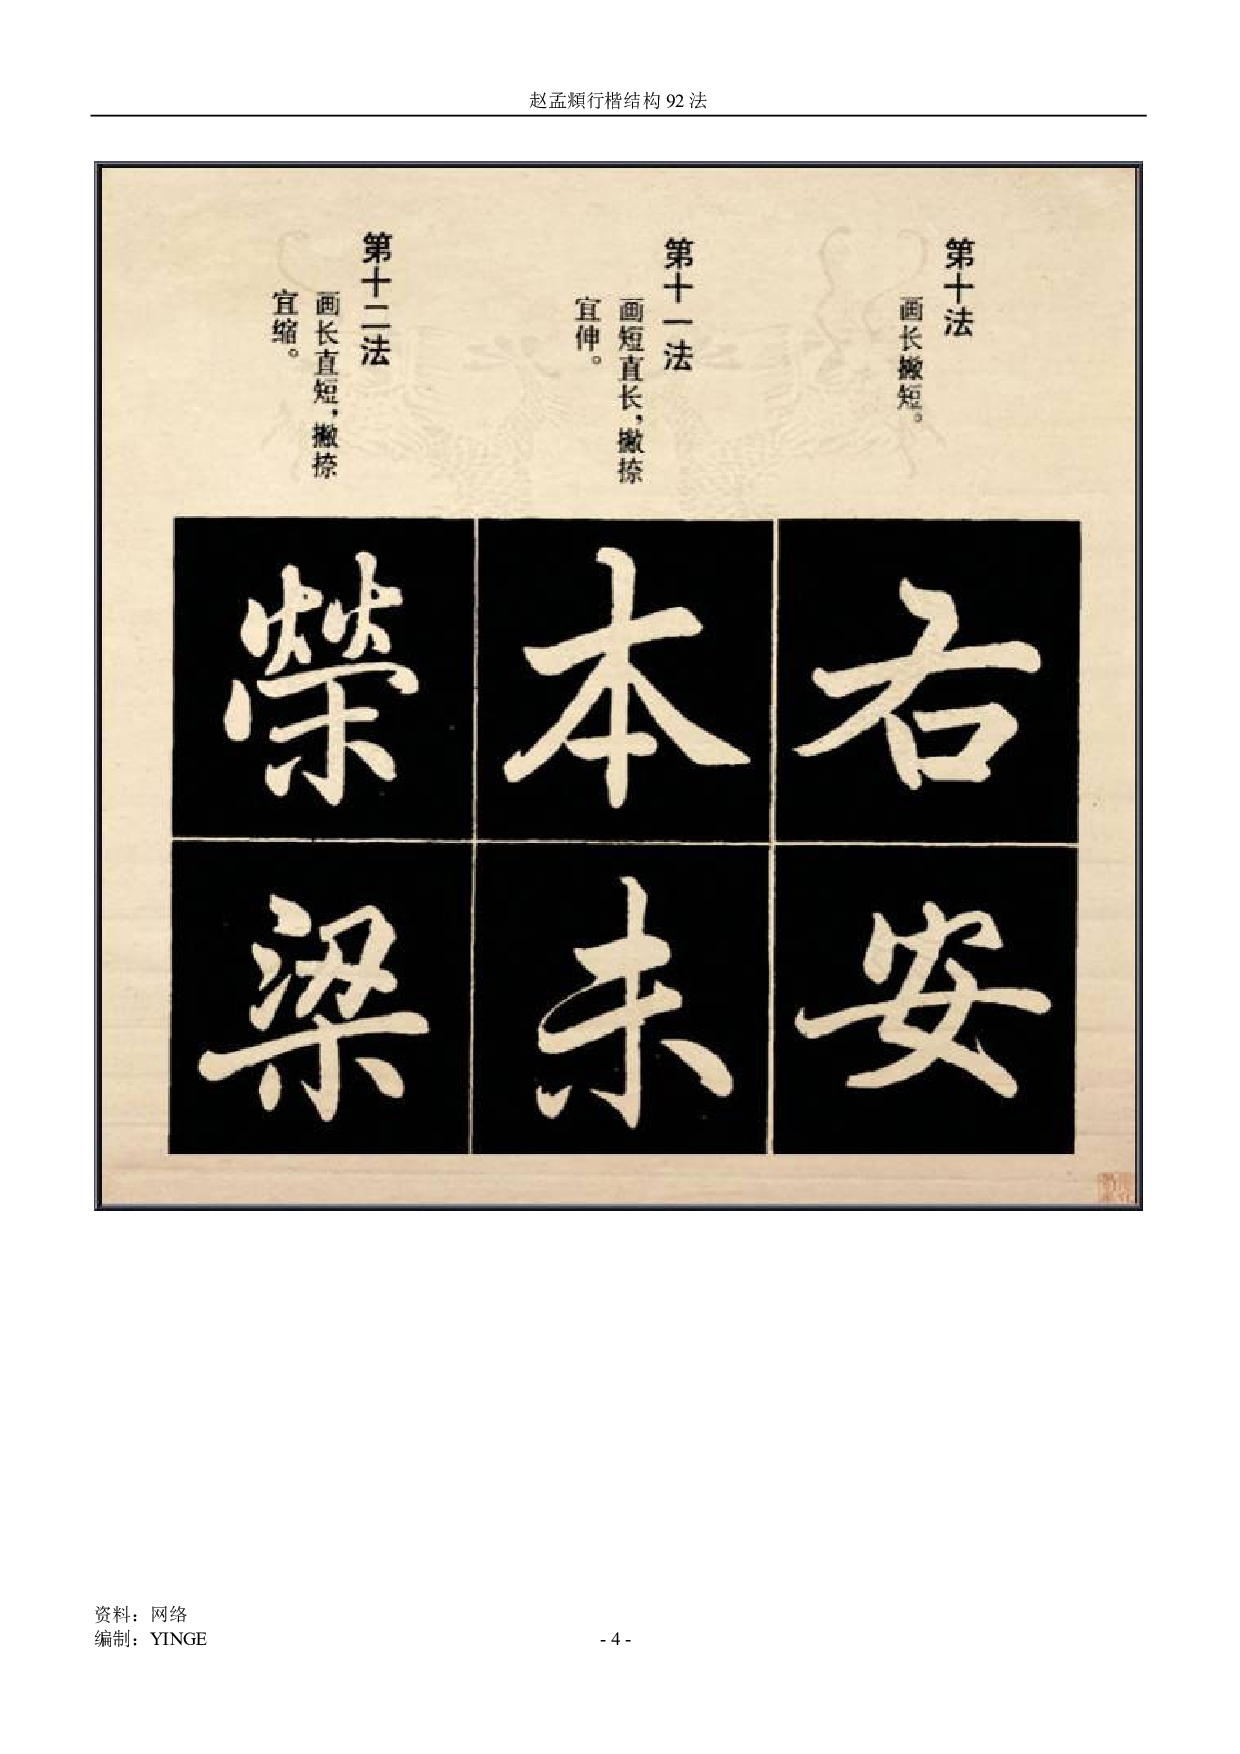 赵孟頫行楷结构92法
第十法
画长撇短。
第十一法
画短直长，撇捺
宜伸。
第十二法
画长直短，撇捺
宜缩。
右
安
本
未
榮
梁
资料：网络
编制：YINGE
- 4 -